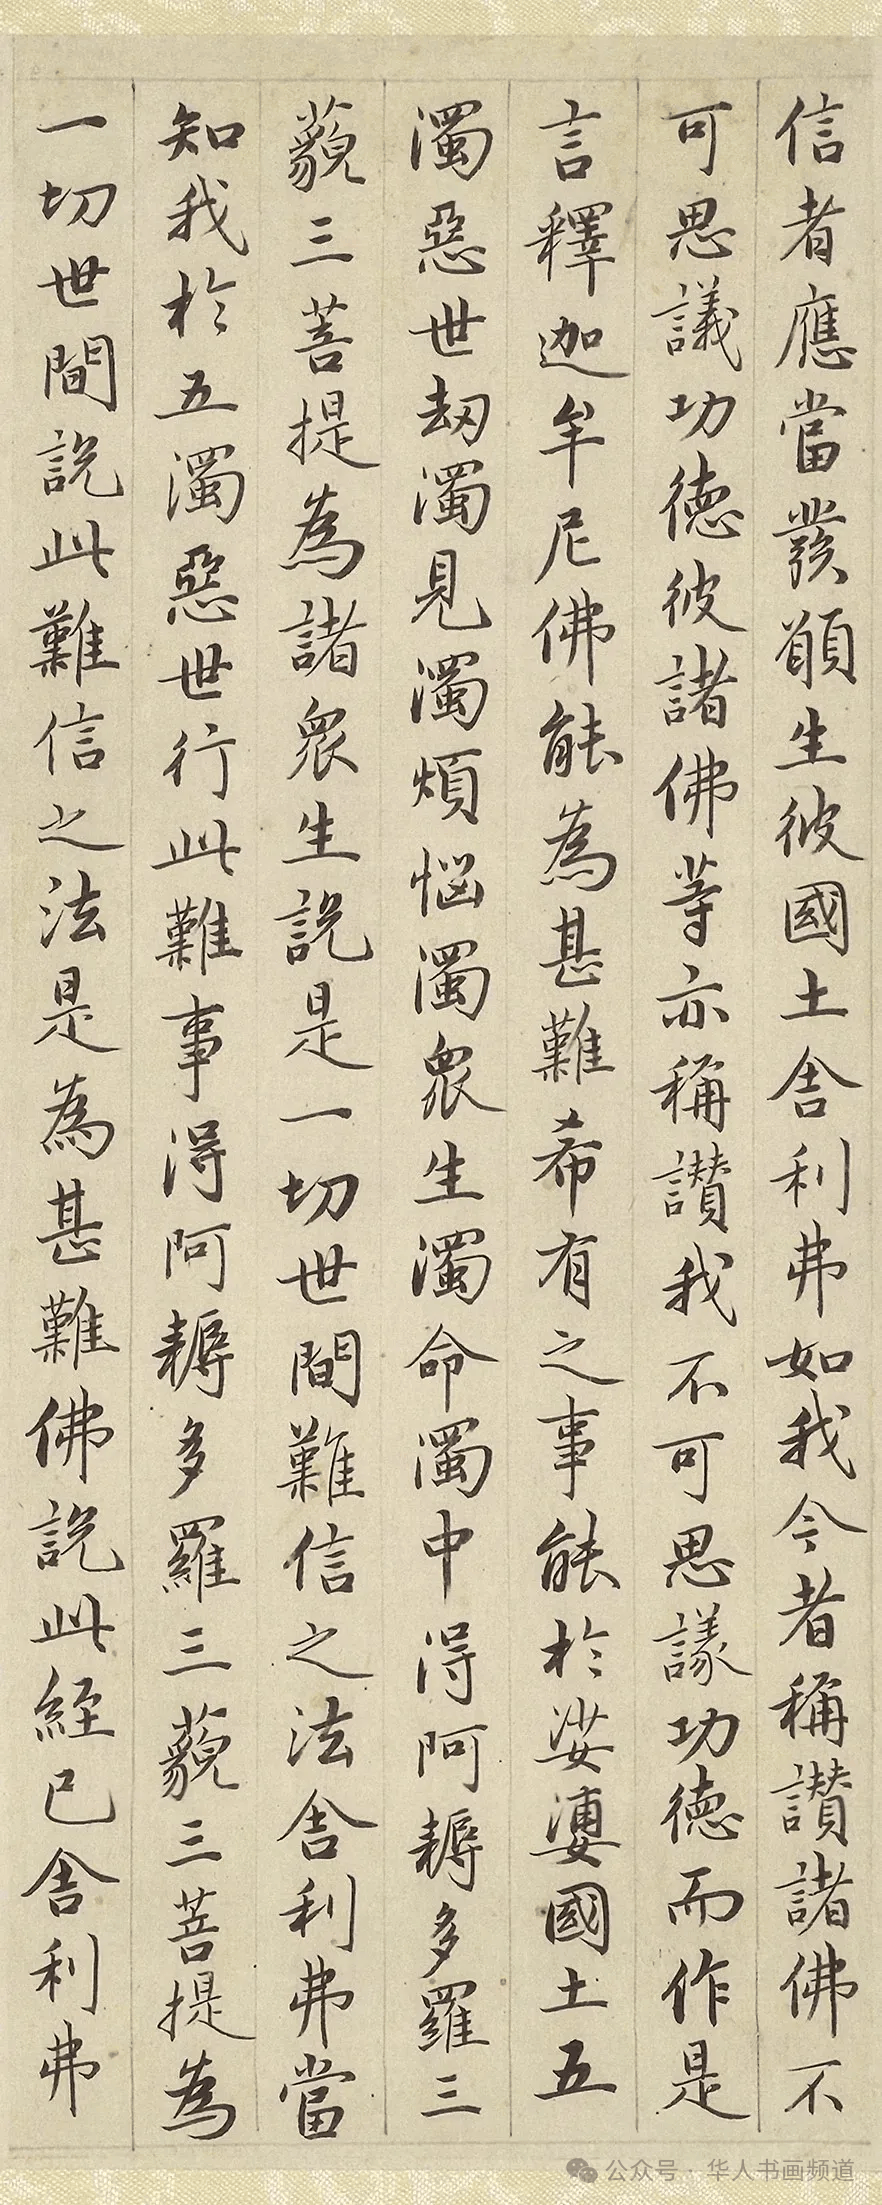 信者應當發願生彼國土舍利弗如我今者稱讚諸佛不
可思議功德彼諸佛等亦稱讚我不可思議功德而作是
言釋迦牟尼佛能為甚難希有之事能於娑婆國土五
濁惡世劫濁見濁煩惱濁眾生濁命濁中得阿耨多羅三
藐三菩提為諸眾生說是一切世間難信之法舍利弗當
知我於五濁惡世行此難事得阿耨多羅三藐三菩提為
一切世間說此難信之法是為甚難佛說此經已舍利弗
公众号·华人书画频道